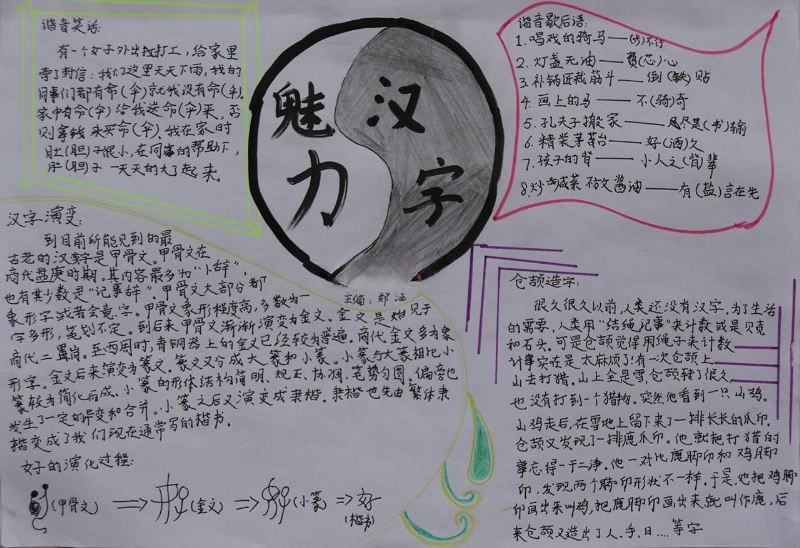 谐音笑话:
有一个女子外出找打工,给家里
寄了封信:我们这里天天下雨,我的
同事们都有命(伞)就我没有命(伞),
家中有命(伞)给我送命(伞)来,否
则拿钱来买命(伞),我在家时
肚(胆)子很小,在同事的帮助下,
肚(胆)子一天天的大了起来。
魅力
汉字
主编:郑
谐音歇后语:
1.唱戏的骑马——(步)不行
2.灯盏无油——费(芯)心
3.补锅匠栽筋斗——倒(铁)贴
4.画上的马——不(骑)奇
5.孔夫子搬家——尽是(书)输
6.精装茅苔——好(酒)久
7.孩子的背——小人之(背)辈
8.炒咸菜不放酱油——有(盐)言在先
汉字演变:
到目前所能见到的最
古老的汉字是甲骨文。甲骨文在
商代盘庚时期,其内容最多为“卜辞”,
也有其少数是“记事辞”。甲骨文大部分都
象形字或者会意字。甲骨文象形程度高,多数为一
字多形,笔划不定。到后来甲骨文渐渐演变为金文。金文是始见于
商代二里岗。至西周时,青铜器上的金文已经较为普遍。商代金文多为象
形字。金文后来演变为篆文。篆文又分成大篆和小篆。小篆与大篆相比小
篆较为简化而成。小篆的形体结构简明、规正、协调,笔势匀圆,偏旁也
发生了一定的异变和合并。小篆之后又演变成隶楷。隶楷也先由繁体隶
楷变成了我们现在通常写的楷书。
好子的演化过程:
(甲骨文) ⟹ (金文) ⟹ (小篆) ⟹ 好
(楷书)
仓颉造字:
很久很久以前,人类还没有汉字,为了生活
的需要,人类用“结绳记事”来计数或是贝壳
和石头。可是仓颉觉得用绳子来计数
计事实在是太麻烦了!有一次仓颉上
山去打猎,山上全是雪,仓颉转了很久
也没有打到一个猎物。突然他看到一只山鸡。
山鸡走后,在雪地上留下来了一排长长的爪印。
仓颉又发现了一排鹿爪印。他就把打猎的
事忘得一干二净。他一对比鹿脚印和鸡脚
印,发现两个脚印形状不一样。于是,他把鸡脚
印画出来叫鸡,把鹿脚印画出来就叫作鹿,后
来仓颉又造出了人、手、日....等字